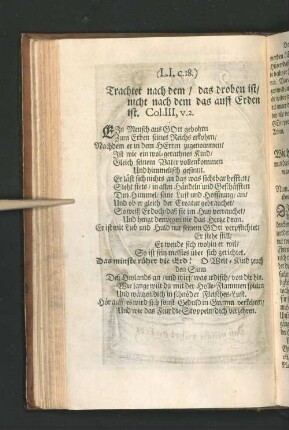 (L.I, c.18.)
Trachtet nach dem / das droben ist/
nicht nach dem das auff Erden
ist. Col.III, v.2.
EIn Mensch aus GOtt gebohren
Zum Erben seines Reichs erkohren/
Nachdem er in dem HErren zugenommen/
Ist wie ein wol-gerathnes Kind/
Gleich seinem Vater vollenkommen
Und himmelisch gesinnt.
Er läst sich nichts an das was sichtbar hefften/
Sieht stets/ in allen Händeln und Geschäfften
Den Himmel seine Lust und Hoffnung an/
Und ob er gleich der Creatur gebrauchet/
So weiß Er doch daß sie im Huy verrauchet/
Und hengt deswegen nie das Hertze dran.
Er ist mit Lieb und Huld mit seinem GOtt verpflichtet/
Er stehe still/
Er wende sich wohin er will/
So ist sein
über sich gerichtet.
Das minste rühret die Erd! O Welt-Kind zieh
den Sinn
Deß Heylands an/ und wirff was irdisch/ von dir hin.
Wie lange wilt du mit der Höllen-Flammen spielen
Und
dich in schnöder Fleisches-Lust.
Hör auff
verkehren/
Und wie das Feur die Stoppeln dich verzehren.